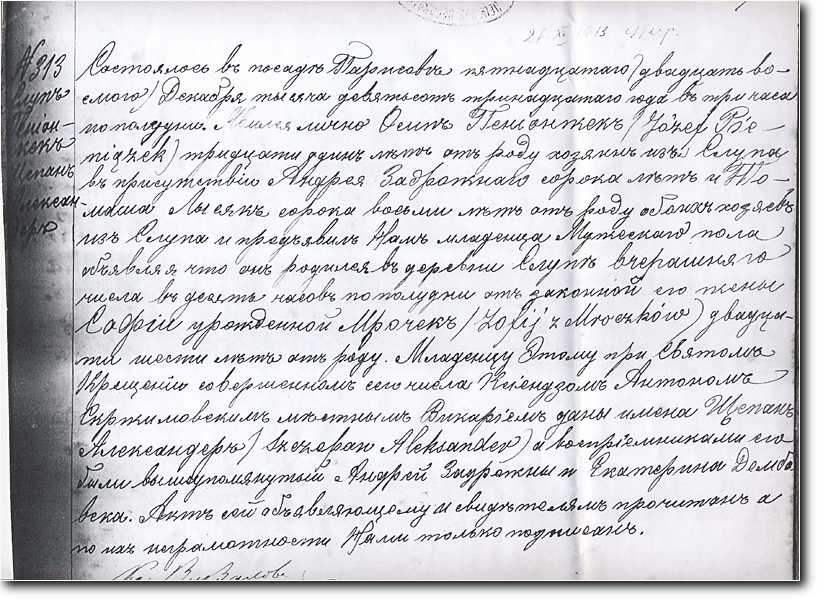 № 313
Слупъ
Пніон-
жекъ
Щепанъ
Алексан-
деръ
Состоялось въ посадѣ Парисовѣ пятнадцатаго/двадцать во-
сьмого/Декабря тысяча девятьсотъ тринадцатаго года въ три часа
пополудни. Явился лично Осипъ Пеніонжек/Józef Pie-
niążek) тридцати одинъ лѣтъ отъ роду хозяинъ изъ Слупа
въ присутствіи Андрея Задрожнаго сорока лѣтъ и То-
маша Лысякъ сорока восьми лѣтъ отъ роду обоихъ хозяевъ
изъ Слупа и предъявилъ Намъ младенца Мужескаго пола
объявляя что онъ родился въ деревни Слупъ вчерашняго
числа въ десять часовъ пополудни отъ законной его жены
Софіи урожденной Мрочекъ/Zofij z Mroczków) двадца-
ти шести лѣтъ отъ роду. Младенцу Этому при Святомъ
Крещеніи совершенномъ сего числа Ксендзомъ Антономъ
Скржимовскимъ мѣстнымъ Викаріемъ даны имена Щепанъ
Александеръ/Szczepan Aleksander) а воспріемниками его
были вышеупомянутый Андрей Задрожны и Екатерина Дембо-
вска. Актъ сей объявляющему и свидѣтелямъ прочитанъ а
по ихъ неграмотности Нами только подписанъ.